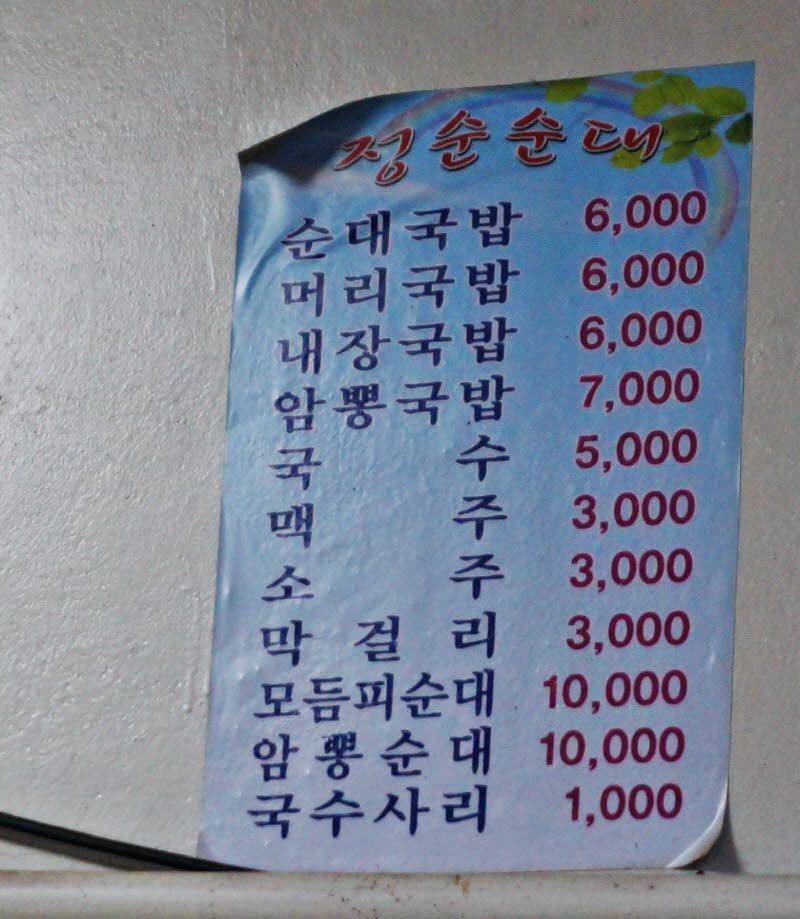 정순순대
순대국밥 6,000
머리국밥 6,000
내장국밥 6,000
암뽕국밥 7,000
국수 5,000
맥주 3,000
소주 3,000
막걸리 3,000
모듬피순대 10,000
암뽕순대 10,000
국수사리 1,000